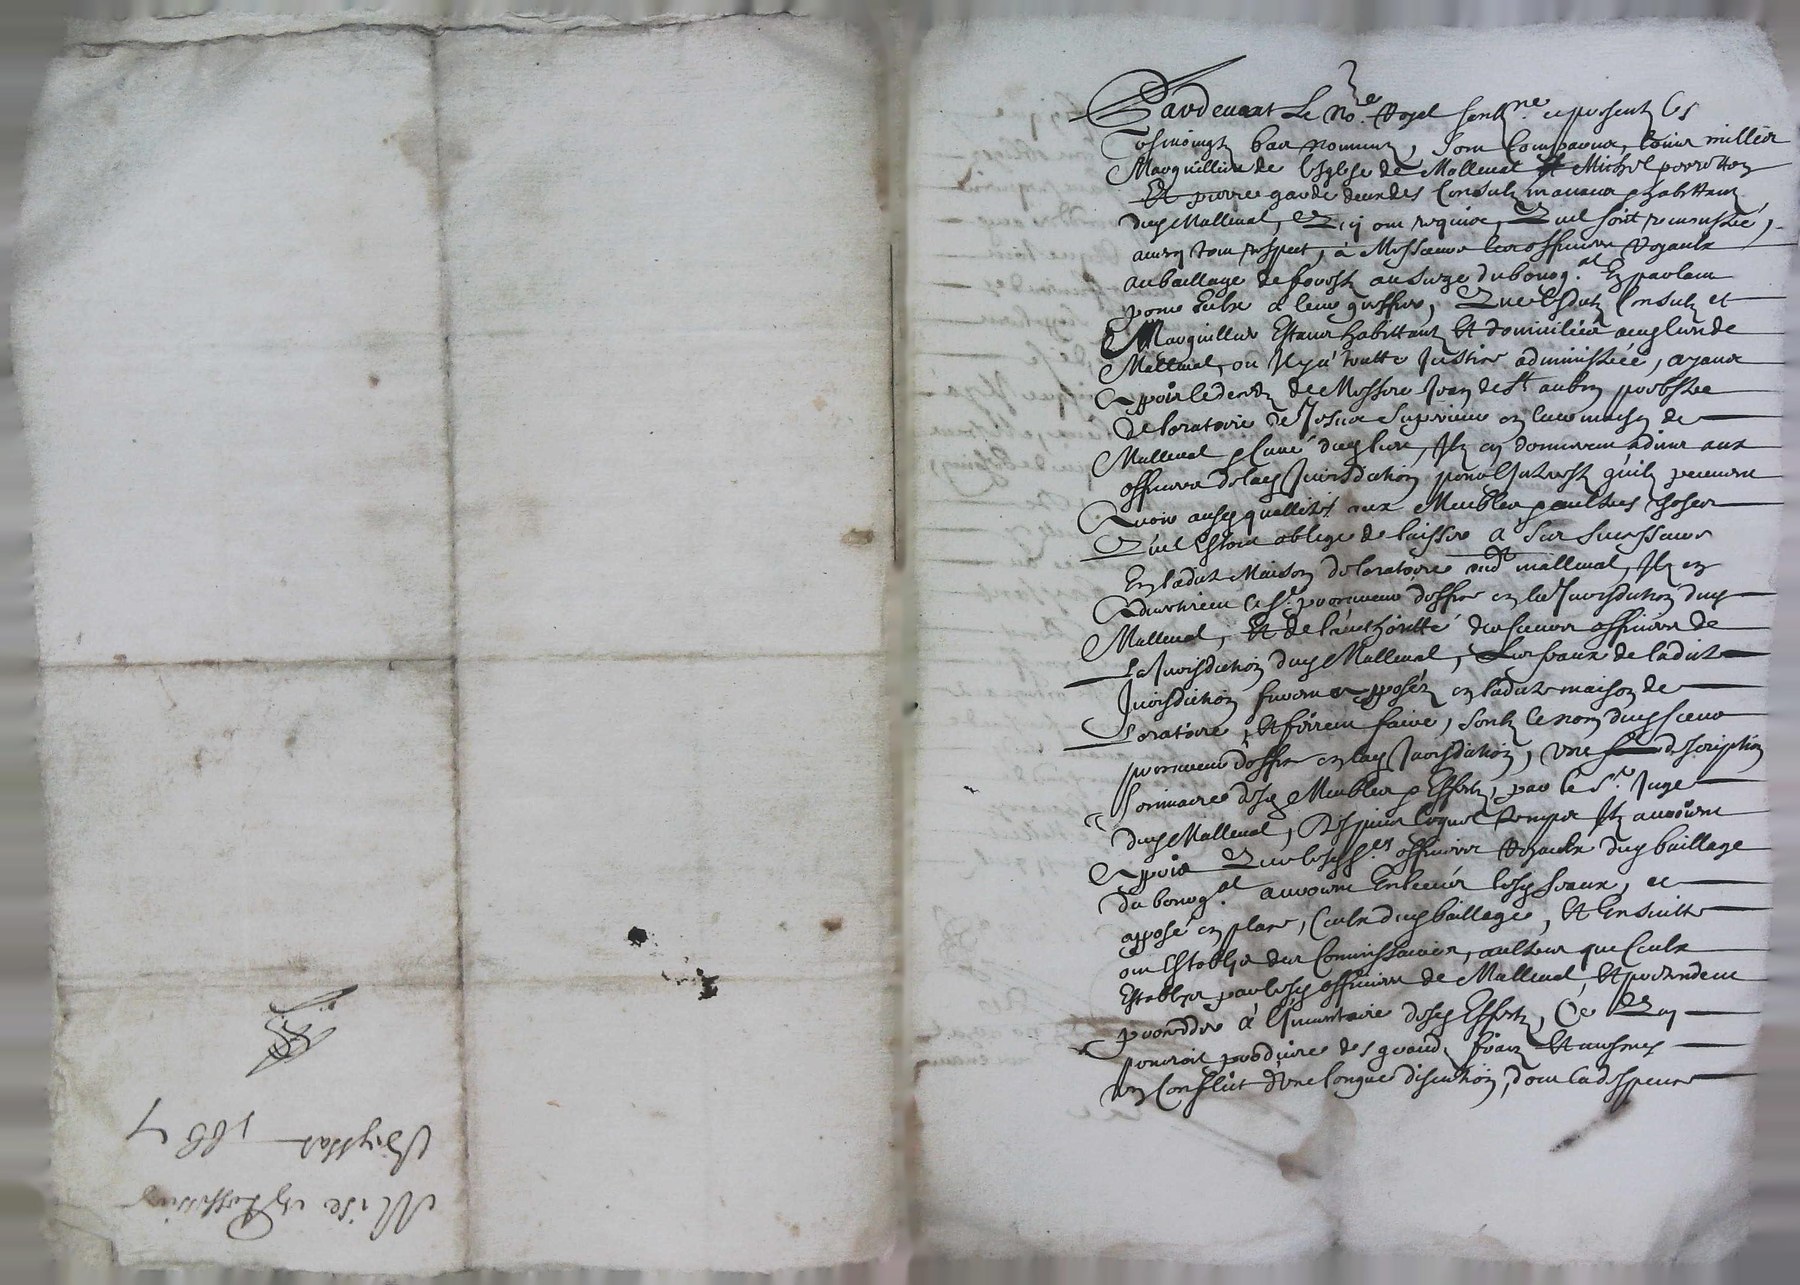 Pardevant Le No.re Royal soub.ne et presentz Les
tesmoingtz bas nommez, sont comparus, Louis millier
Marguillier de l'esglise de Malleval et Michel perrotton
Et pierre garde deux des Consulz manans & habittans
dud Malleval, Qui ont requis, Quil soit remonstré,
avecq tout respect, à Messieurs les officiers Royaulx
au baillage de forestz au siege du bourg.al En parlant
pour Eulx a leur greffier, Que lesditz Consulz et
Marguillier Estans habittans Et domiciliés aud lieu de
Malleval, ou Il y a toutte Justice administrée, ayant
appris le decedz de Messire Jean de St aubin prebstre
de loratoire de Jesus Superieur en leur maison de
Malleval & Curé dud lieu, Ilz en donnerent advis aux
officiers de lad Jurisdiction pour l'Interestz quilz peuvent
avoir ausd quallités aux Meubles & aultres choses
Quil Estoit obligé de laisser a Ses Successeurs
En ladite Maison de loratoire dud malleval, Ilz en
advertirent le Sr. procureur d'office en la Jurisdiction dud
Malleval, Et de l'authoritté des sieurs officiers de
La Jurisdiction dud Malleval, Les sceaux de ladite
Jurisdiction furent apposés en ladite maison de
l'oratoire, Et firent faire, soubz le nom dud sieur
procureur d'office en lad Jurisdiction, une description
sommaire desd Meubles & Effectz, par le Sr. Juge
dud Malleval, Despuis lequel temps Ilz auroient
appris Que lesd S.rs officiers Royaulx dud baillage
du bourg.al auroient Enlevés lesd sceaux, et
apposé en place, Ceulx dud baillage, Et Ensuitte
ont Establys des Commissaires, aultres que Ceulx
Establys par lesd officiers de Malleval, Et pretendent
proceder à l'Inventaire desd Effectz, Ce Quy
pourroit produire des grandz fraix Et mesmes
un Conflict d'une longue discution, dont la despence
Mise en
1667